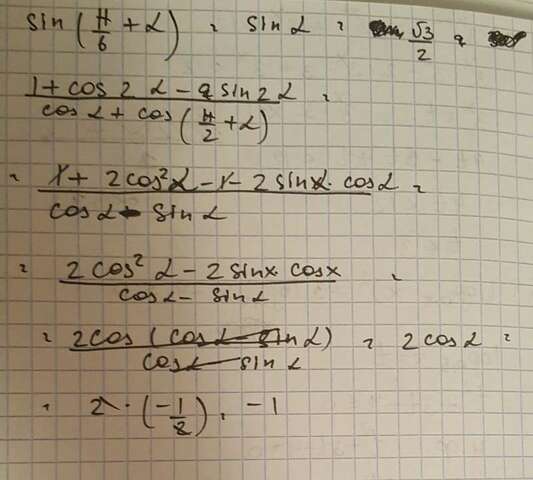 sin(π/6 + α) = sin α = √3/2
(1 + cos 2α - sin 2α)/(cos α + cos(π/2 + α)) =
= (1 + 2cos²α - 1 - 2 sin α · cos α)/(cos α - sin α) =
= (2cos²α - 2 sin x · cos x)/(cos α - sin α) =
= (2cos (cos α - sin α))/(cos α - sin α) = 2 cos α =
= 2 · (-1/2) = -1